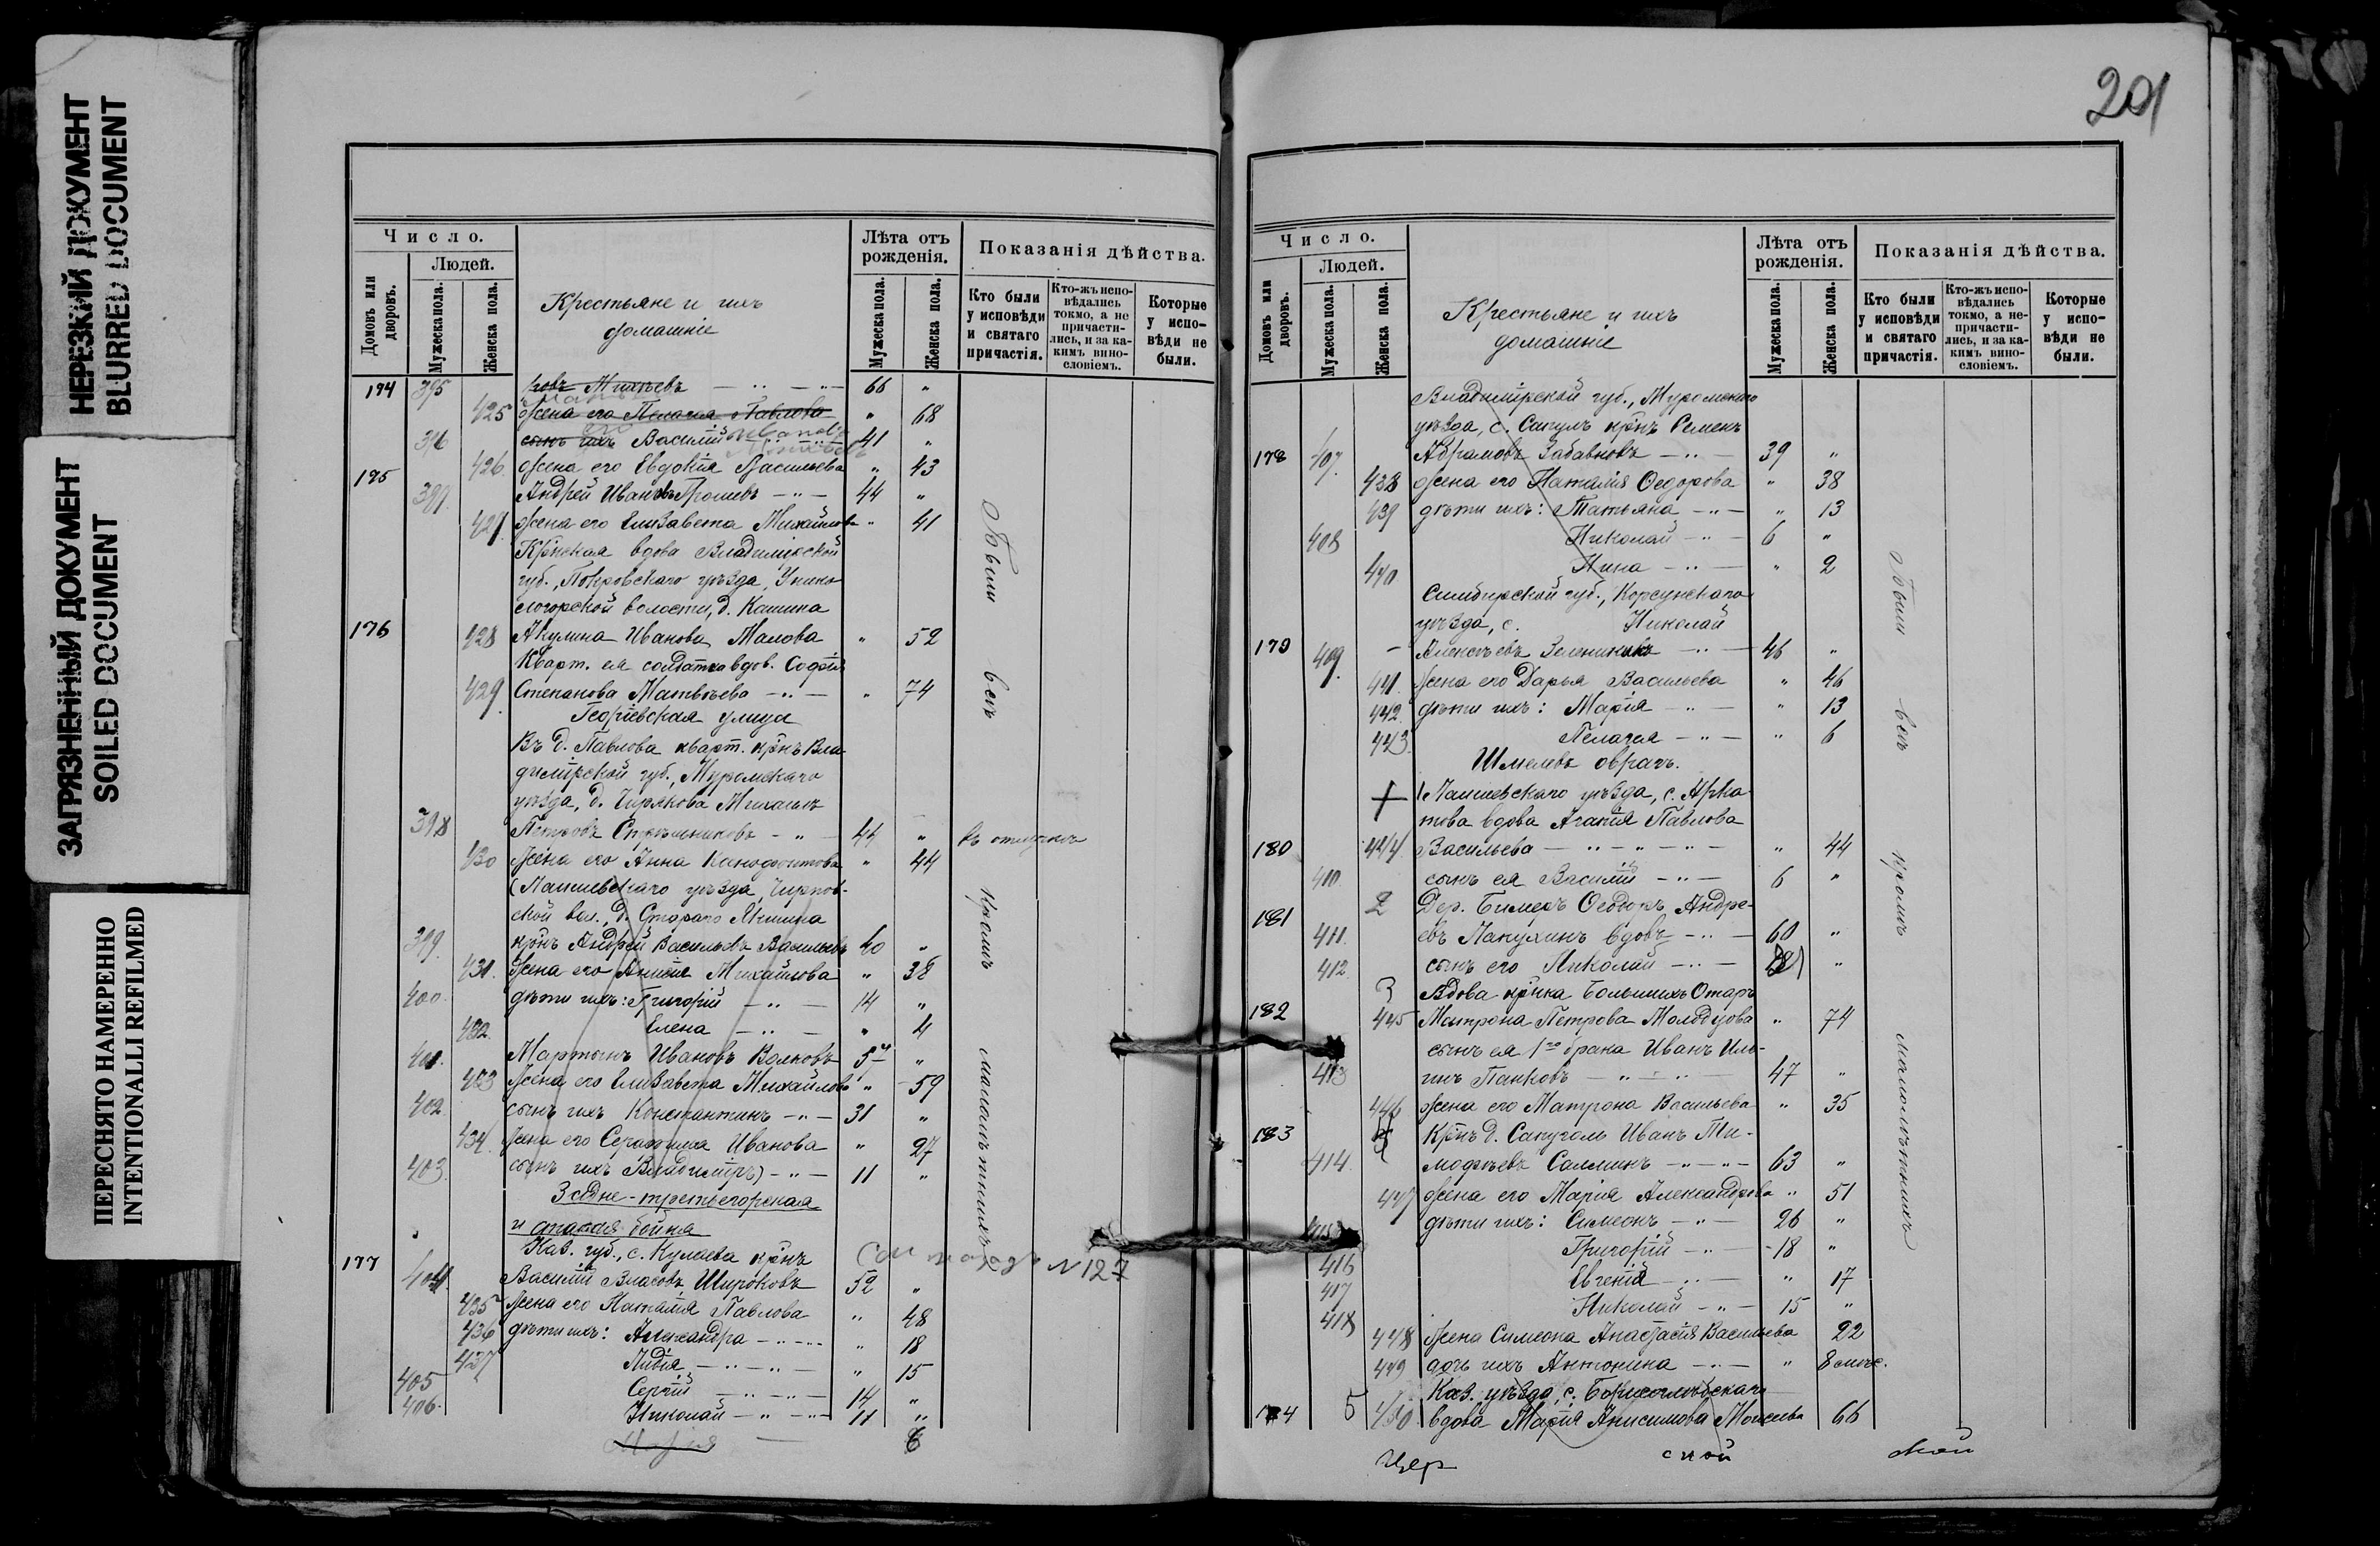 НЕРЕЗКИЙ ДОКУМЕНТ
BLURRED DOCUMENT
ЗАГРЯЗНЕННЫЙ ДОКУМЕНТ
SOILED DOCUMENT
ПЕРЕСНЯТО НАМЕРЕННО
INTENTIONALLI REFILMED
Число.
Людей.
Домовъ или дворовъ.
Мужеска пола.
Женска пола.
Крестьяне и ихъ
домашніе
Лѣта отъ рожденія.
Мужеска пола.
Женска пола.
Показанія дѣйства.
Кто были у исповѣди и святаго причастія.
Кто-жъ исповѣдались токмо, а не причастились, и за какимъ винословіемъ.
Которые у исповѣди не были.
174 395 66 "
425 жена его Пелагея Павлова " 68
396 сынъ ихъ Василій Ивановъ 41 "
426 жена его Евдокія Васильева " 43
175 397 Андрей Ивановъ — " — 44 "
427 жена его Елизавета Михайлова " 41
Кр̑нская вдова Владимірской
губ., Покровскаго уѣзда,
волости, д. Кашина
176 428 Акулина Иванова Малова " 52
Кварт. ея солдатка вдов. Софія
429 Степанова Матвѣева — " — " 74
Георгіевская улица
Въ д. Павлова кварт. кр̑нъ Вла-
димірской губ., Муромскаго
уѣзда, д. Чирякова Михаилъ
398 Петровъ — " — 44 " въ отлучкѣ
430 Жена его Анна " 44
(Лаишевскаго уѣзда,
ской вол., д. Стараго
399 кр̑нъ Андрей Васильевъ Васильевъ 40 "
431 Жена его Михайлова " 38
400 дѣти ихъ: Григорій — " — 14 "
432 Елена — " — " 4
401 Мартынъ Ивановъ Волковъ "
433 Жена его Елизавета Михайлова " 59
402 сынъ ихъ Константинъ — " — 31 "
434 Жена его Серафима Иванова " 27
403 сынъ ихъ Владиміръ) — " — 11 "
Задне-третьегорская
и старая бойня
177 Каз. губ., с. Кулаева кр̑нъ
404 Василій Власовъ Широковъ 52 "
435 Жена его Наталія Павлова " 48
436 дѣти ихъ: Александра — " — " 18
437 Лидія — " — " — " 15
405 Сергій — " — " — 14 "
406 Николай — " — " — 11 "
6
Были всѣ кромѣ малолѣтнихъ
N 127
201
Число.
Людей.
Домовъ или дворовъ.
Мужеска пола.
Женска пола.
Крестьяне и ихъ
домашніе
Лѣта отъ рожденія.
Мужеска пола.
Женска пола.
Показанія дѣйства.
Кто были у исповѣди и святаго причастія.
Кто-жъ исповѣдались токмо, а не-причастились, и за какимъ винословіемъ.
Которые у исповѣди не были.
Владимірской губ., Муромскаго
уѣзда, с. кр̑нъ Семенъ
178 407 Абрамовъ Забавновъ — " — 39 "
438 жена его Наталія Ѳедорова " 38
439 дѣти ихъ: Татьяна — " — " 13
408 Николай — " — 6 "
440 Нина — " — " 2
Симбирской губ., Корсунскаго
уѣзда, с. Николай
179 409 Алексѣевъ — " — 46 "
441 Жена его Дарья Васильева " 46
442 дѣти ихъ: Марія — " — " 13
443 Пелагея — " — " 6
Шмелевъ оврагъ.
Лаишевскаго уѣзда, с. Арха-
това вдова Агапія Павлова
180 444 Васильева — " — " — " — " 44
410 сынъ ея Василій — " — 6 "
181 2 Дер. Бимеръ Ѳеодоръ Андре-
411 евъ Лапухинъ вдовъ — " — 60 "
412 сынъ его Николай — " — "
3 Вдова кр̑нка Большихъ Отаръ
182 445 Матрона Петрова Молодцова " 74
сынъ ея 1го брака Иванъ Иль-
413 инъ Панковъ — " — " — 47 "
446 жена его Матрона Васильева " 35
183 4 Кр̑нъ д. Сапуголь Иванъ Ти-
414 мофѣевъ Салминъ — " — " — 63 "
447 жена его Марія Александрова " 51
415 дѣти ихъ: Симеонъ — " — 26 "
416 Григорій — " — 18 "
417 Евгенія — " — " 17
418 Николай — " — 15 "
448 Жена Симеона Анастасія Васильева 22
449 дочь ихъ Антонина — " — " 8 мѣс.
Каз. уѣзда, с. Борисоглѣбскаго
184 5 450 вдова Марія Анисимова Моисеева 66
Были всѣ кромѣ малолѣтнихъ
Цер ской